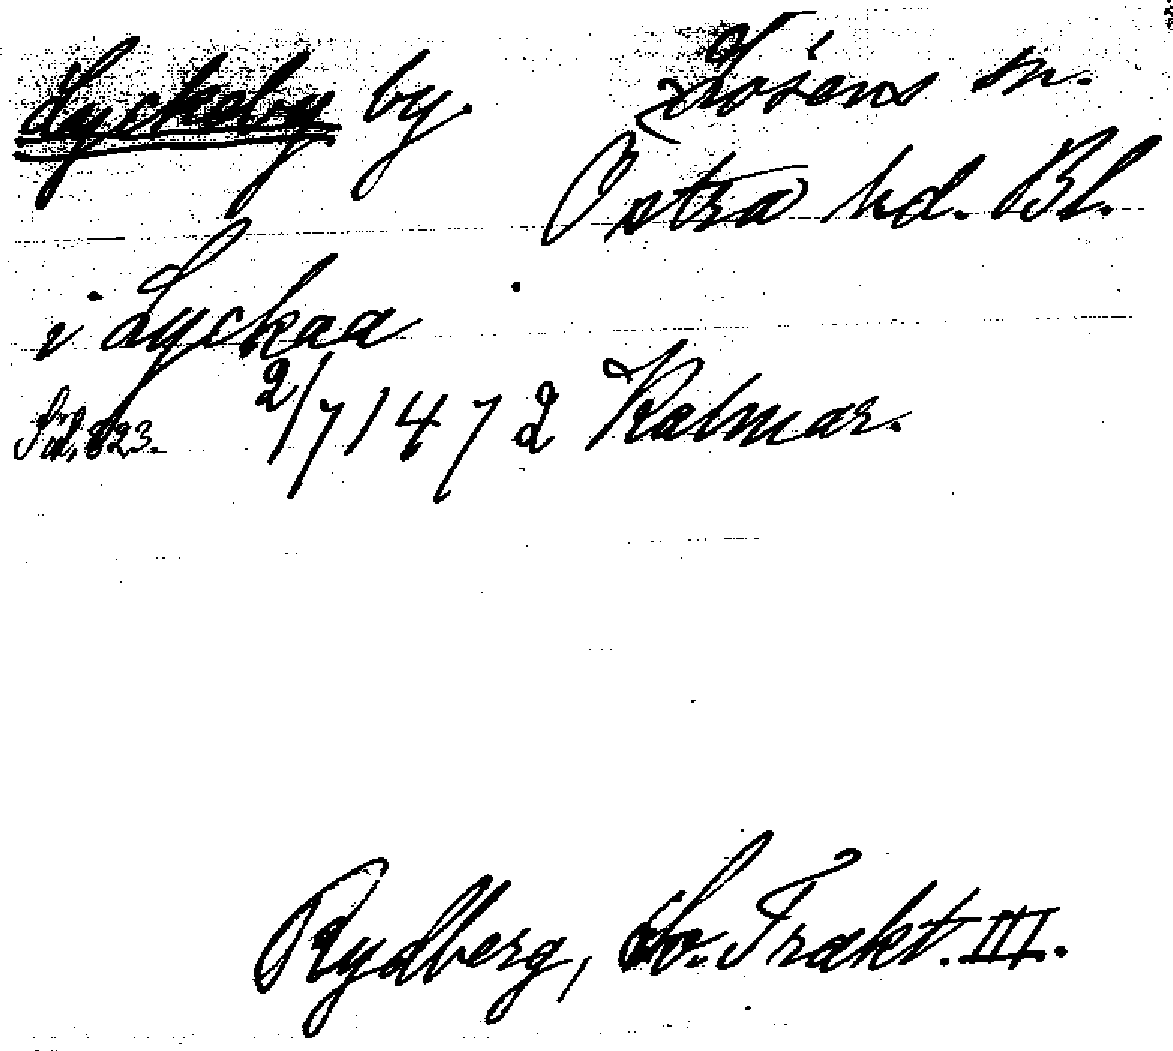 Lyckeby by. Lösens sn.
Östra hd. Bl.
i Lyckaa
Sid. 323. 2/7 1472 Kalmar.
Rydberg, Sv. Trakt. III.